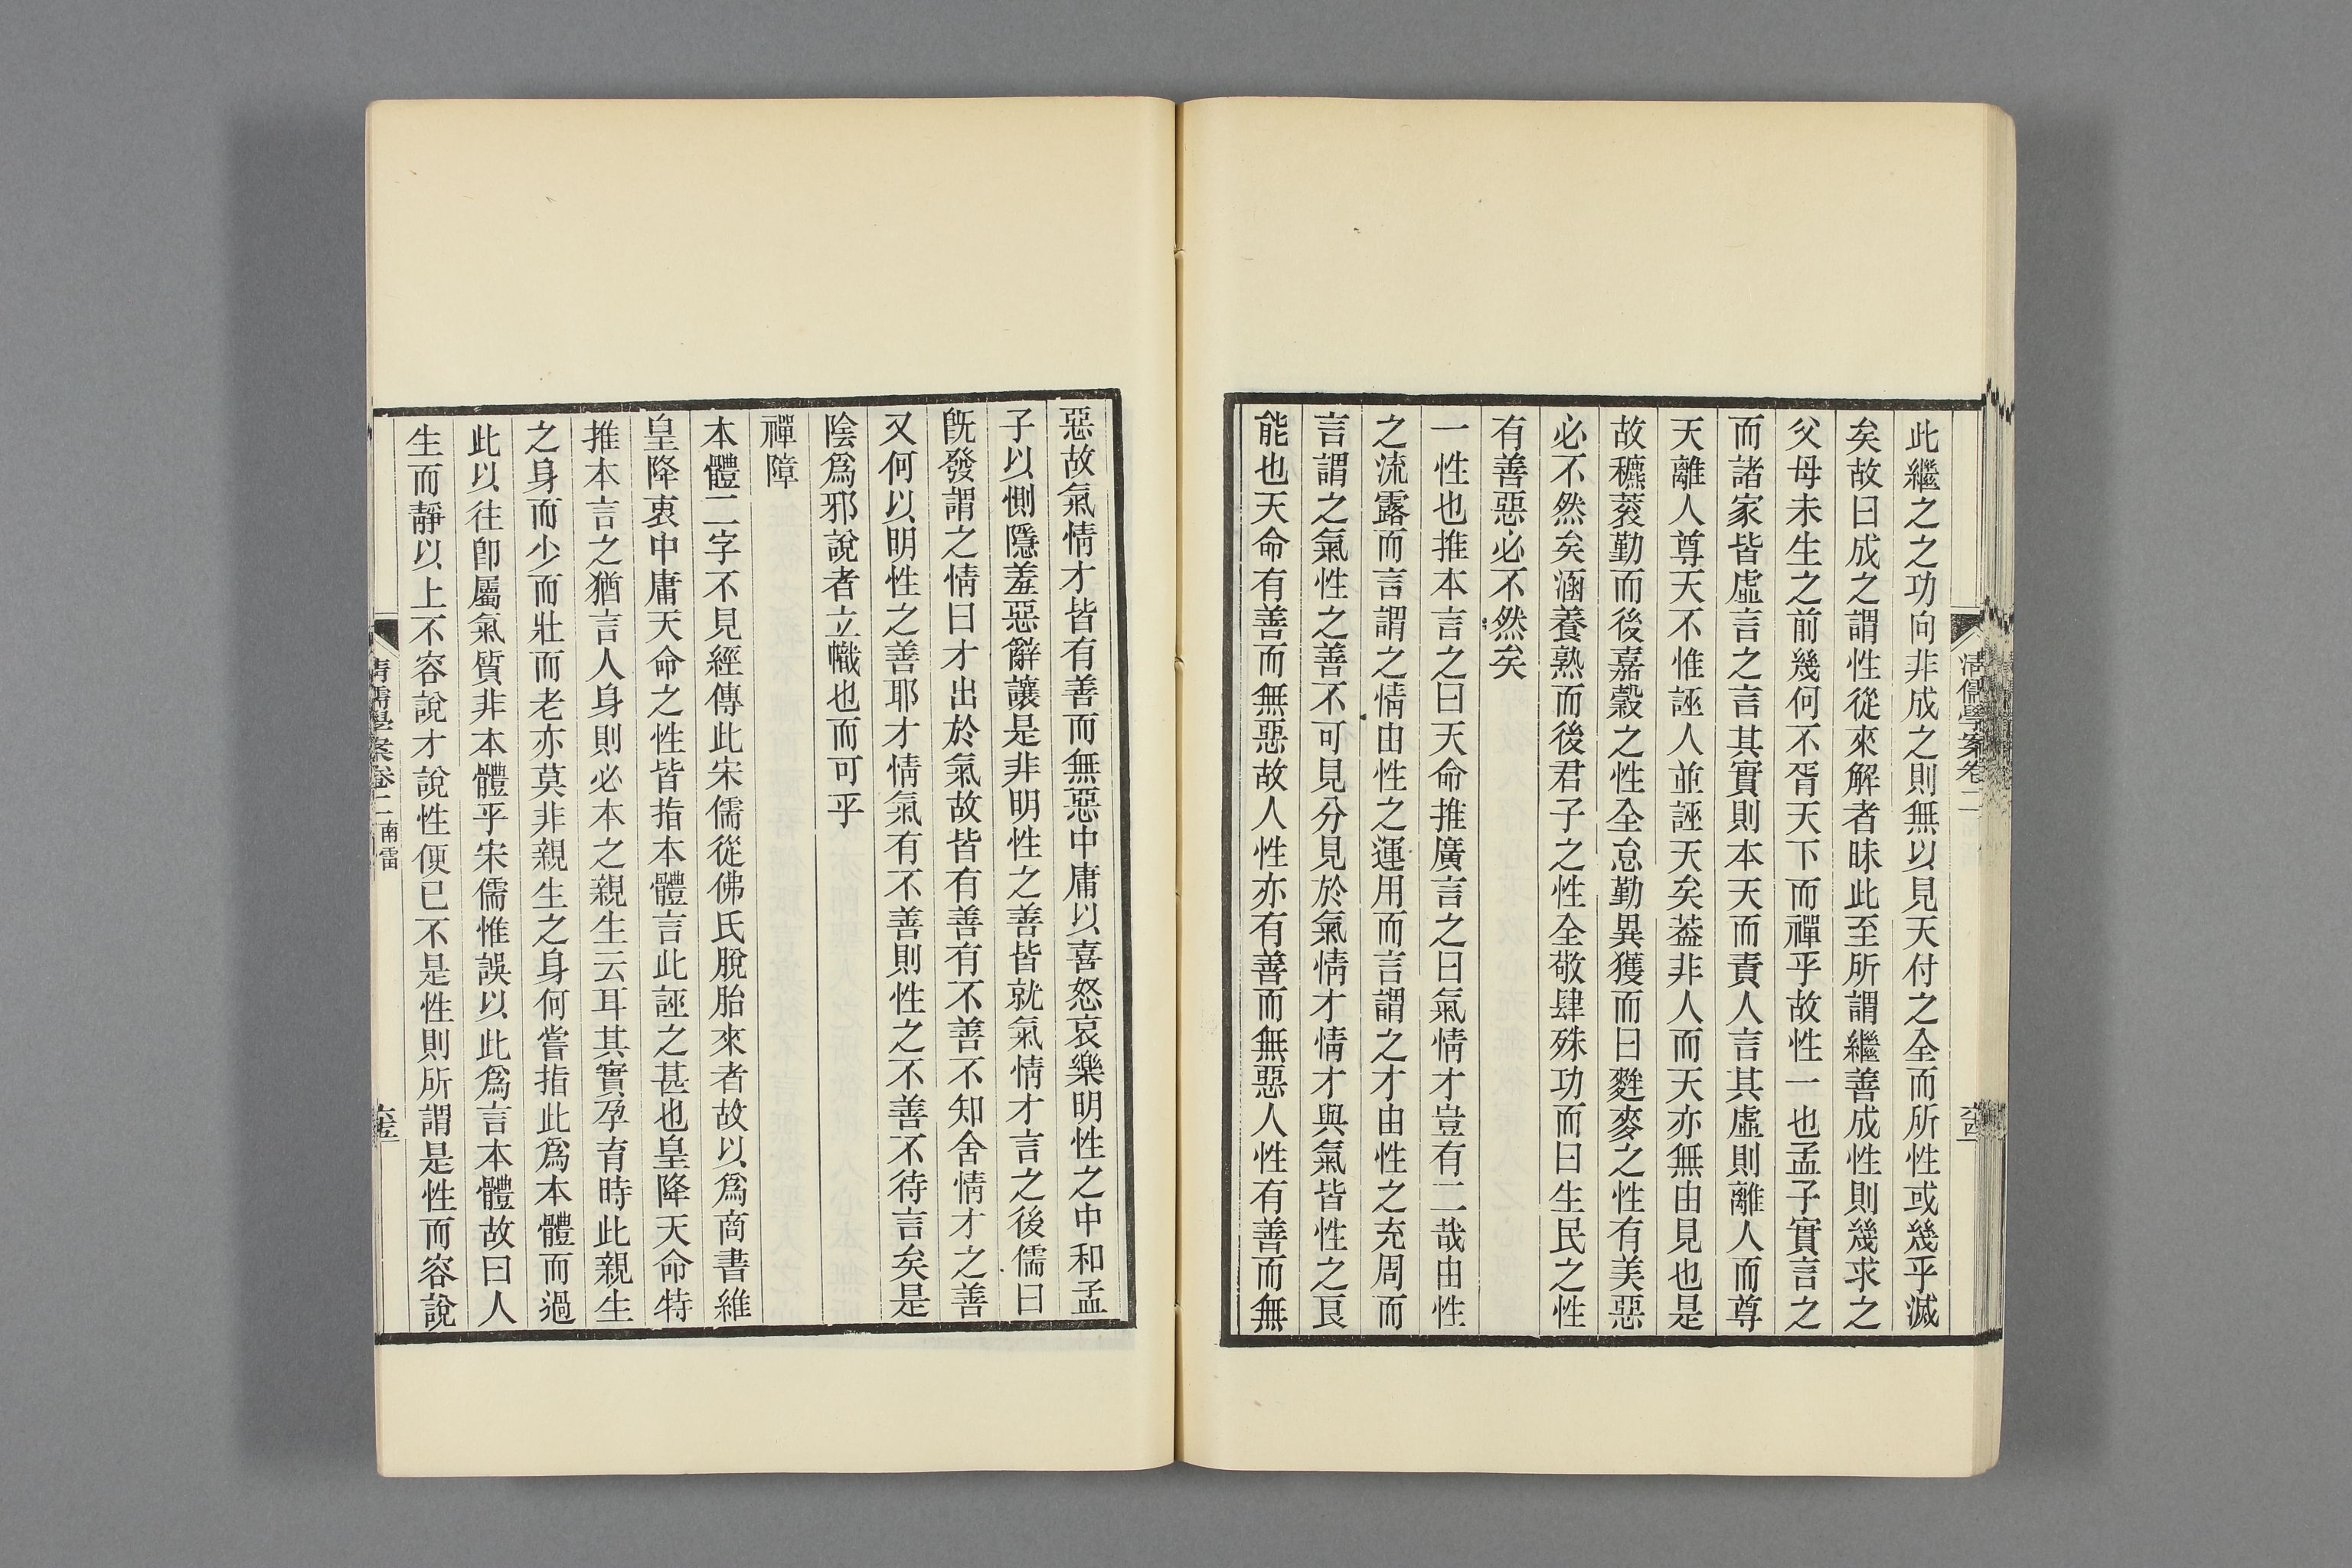 清儒學案卷二
六十四
此繼之之功向非成之則無以見天付之全而所性或幾乎滅
矣故曰成之謂性從來解者昧此至所謂繼善成性則幾求之
父母未生之前幾何不胥天下而禪乎故性一也孟子實言之
而諸家皆虛言之言其實則本天而責人言其虛則離人而尊
天離人尊天不惟誣人並誣天矣葢非人而天亦無由見也是
故穮蔉勤而後嘉穀之性全怠勤異獲而曰麰麥之性有美惡
必不然矣涵養熟而後君子之性全敬肆殊功而曰生民之性
有善惡必不然矣
一性也推本言之曰天命推廣言之曰氣情才豈有二哉由性
之流露而言謂之情由性之運用而言謂之才由性之充周而
言謂之氣性之善不可見分見於氣情才情才與氣皆性之良
能也天命有善而無惡故人性亦有善而無惡人性有善而無
惡故氣情才皆有善而無惡中庸以喜怒哀樂明性之中和孟
子以惻隱羞惡辭讓是非明性之善皆就氣情才言之後儒曰
旣發謂之情曰才出於氣故皆有善有不善不知舍情才之善
又何以明性之善耶才情氣有不善則性之不善不待言矣是
陰爲邪說者立幟也而可乎
禪障
本體二字不見經傳此宋儒從佛氏脫胎來者故以爲商書維
皇降衷中庸天命之性皆指本體言此誣之甚也皇降天命特
推本言之猶言人身則必本之親生云耳其實孕育時此親生
之身而少而壯而老亦莫非親生之身何嘗指此爲本體而過
此以往卽屬氣質非本體乎宋儒惟誤以此爲言本體故曰人
生而靜以上不容說才說性便已不是性則所謂是性而容說
清儒學案卷二 南雷一
六十五